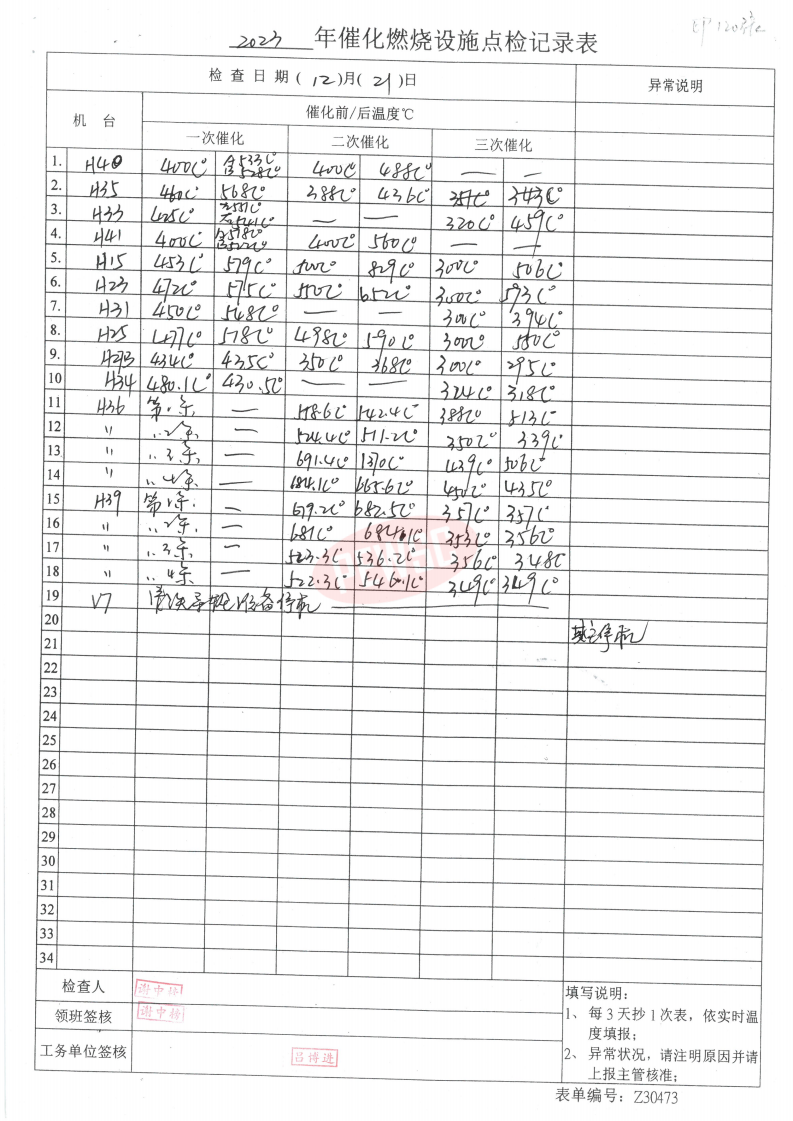 2023 年催化燃烧设施点检记录表
检查日期(12)月(21)日 异常说明
机台 催化前/后温度℃
一次催化 二次催化 三次催化
1. H40 400℃ 533℃ 528℃ 400℃ 488℃ — —
2. H35 460℃ 568℃ 388℃ 436℃ 357℃ 343℃
3. H33 425℃ 左551℃ 右541℃ — — 320℃ 459℃
4. H41 400℃ 518℃ 522℃ 400℃ 560℃ — —
5. H15 453℃ 579℃ 500℃ 829℃ 300℃ 506℃
6. H23 472℃ 575℃ 550℃ 652℃ 300℃ 593℃
7. H31 450℃ 548℃ — — 300℃ 394℃
8. H25 477℃ 578℃ 498℃ 590℃ 300℃ 550℃
9. 434℃ 435℃ 350℃ 368℃ 300℃ 295℃
10 H34 480.1℃ 430.5℃ — — 324℃ 318℃
11 H36 第1条 — 578.6℃ 542.4℃ 388℃ 513℃
12 〃 〃2条 — 524.4℃ 511.2℃ 350℃ 339℃
13 〃 〃3条 — 691.4℃ 439℃ 506℃
14 〃 〃4条 — 665.6℃ 450℃ 435℃
15 H39 第1条 — 679.2℃ 682.5℃ 357℃ 357℃
16 〃 〃2条 — 681℃ 684.1℃ 353℃ 356℃
17 〃 〃3条 — 523.3℃ 536.2℃ 356℃ 348℃
18 〃 〃4条 — 522.3℃ 546.1℃ 349℃ 349℃
19 V7 设备停机
20
21 其它停机
22
23
24
25
26
27
28
29
30
31
32
33
34
检查人 谢中榜
领班签核 谢中榜
工务单位签核 吕博进
填写说明:
1、每3天抄1次表,依实时温
度填报;
2、异常状况,请注明原因并请
上报主管核准;
表单编号:Z30473